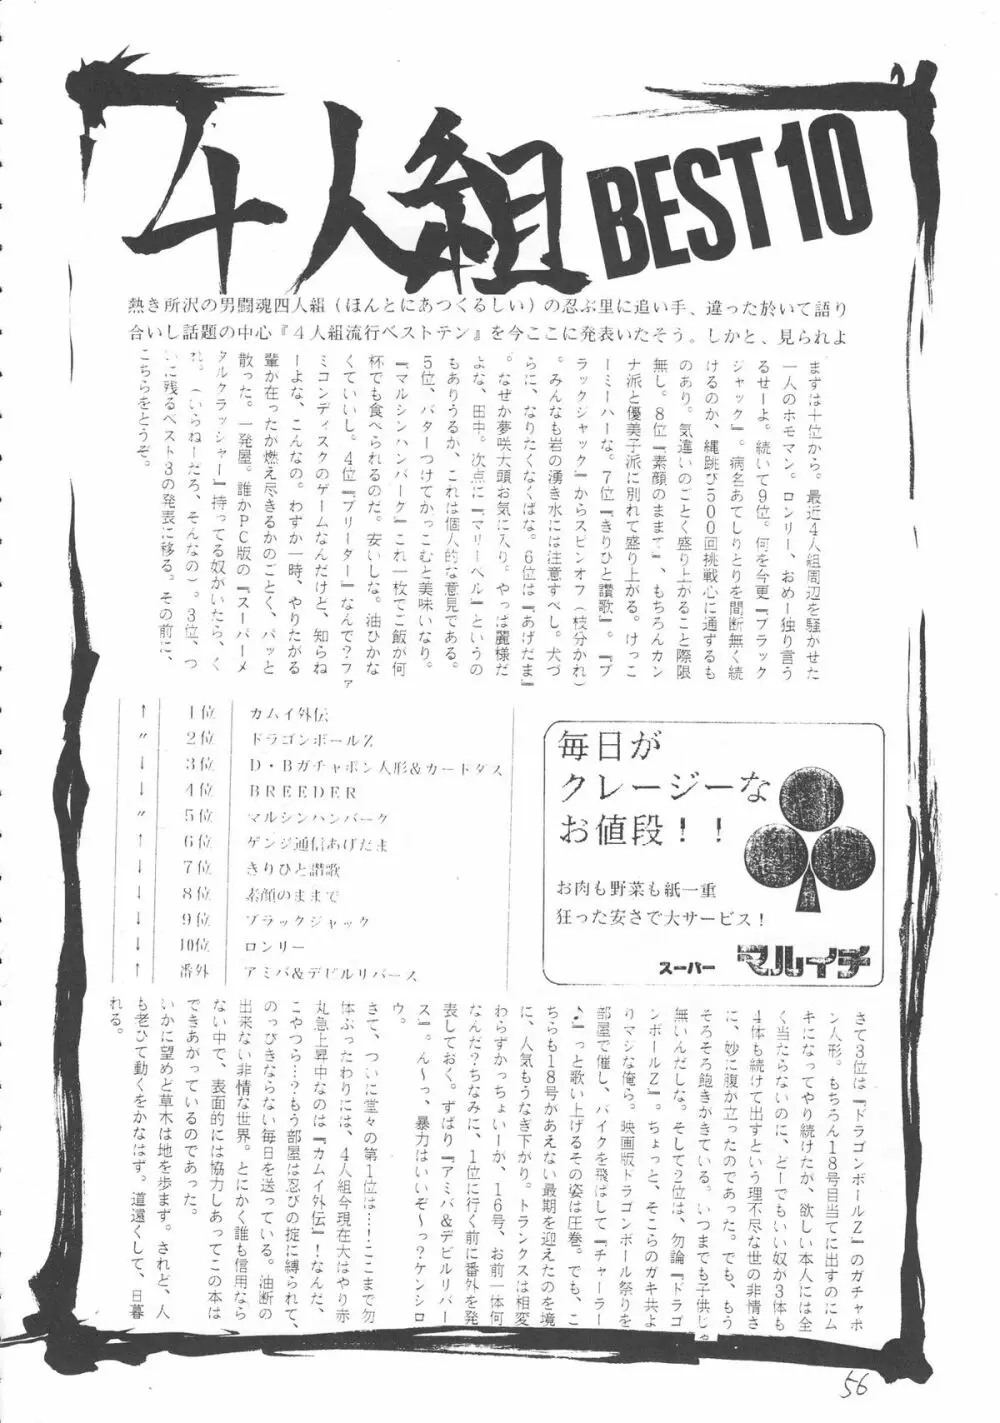 4人組 BEST10
熱き所沢の男闘魂四人組(ほんとにあつくるしい)の忍ぶ里に追い手、違った於いて語り
合いし話題の中心『4人組流行ベストテン』を今ここに発表いたそう。しかと、見られよ
まずは十位から。最近4人組周辺を騒がせた
一人のホモマン。ロンリー、おめー独り言う
るせーよ。続いて9位。何を今更『ブラック
ジャック』。病名あてしりとりを間断無く続
けるのか、縄跳び500回挑戦心に通ずるも
のあり。気違いのごとく盛り上がること際限
無し。8位『素顔のままで』、もちろんカン
ナ派と優美子派に別れて盛り上がる。けっこ
ーミーハーな。7位『きりひと讃歌』。『ブ
ラックジャック』からスピンオフ(枝分かれ)
。みんなも岩の湧き水には注意すべし。犬づ
らに、なりたくなくばな。6位は『あげだま』
。なぜか夢咲大頭お気に入り。やっぱ麗様だ
よな、田中。次点に『マリーベル』というの
もありうるか、これは個人的な意見である。
5位、バターつけてかっこむと美味いなり。
『マルシンハンバーク』これ一枚でご飯が何
杯でも食べられるのだ。安いしな。油ひかな
くていいし。4位『ブリーター』なんで?ファ
ミコンディスクのゲームなんだけど、知らね
ーよな、こんなの。わずか一時、やりたがる
輩か在ったか燃え尽きるかのごとく、パッと
散った。一発屋。誰かPC版の『スーパーメ
タルクラッシャー』持ってる奴がいたら、く
れ。(いらねーだろ、そんなの)。3位、つ
いに残るベスト3の発表に移る。その前に、
こちらをとうぞ。
↑ 1位 カムイ外伝
〃 2位 ドラゴンボールZ
↓ 3位 D・Bガチャポン人形&カードダス
↓ 4位 BREEDER
〃 5位 マルシンハンバーク
↑ 6位 ゲンジ通信あげだま
↓ 7位 きりひと讃歌
↓ 8位 素顔のままで
↓ 9位 ブラックジャック
↓ 10位 ロンリー
↑ 番外 アミバ&デビルリバース
毎日が
クレージーな
お値段!!
お肉も野菜も紙一重
狂った安さで大サービス!
スーパー マルイチ
さて3位は『ドラゴンボールZ』のガチャポ
ン人形。もちろん18号目当てに出すのにム
キになってやり続けたが、欲しい本人には全
く当たらないのに、どーでもいい奴が3体も
4体も続けて出すという理不尽な世の非情さ
に、妙に腹が立ったのであった。でも、もう
そろそろ飽きかきている。いつまでも子供じゃ
無いんだしな。そして2位は、勿論『ドラゴ
ンボールZ』。ちょっと、そこらのガキ共よ
りマシな俺ら。映画版ドラゴンボール祭りを
部屋で催し、バイクを飛ばして『チャーラー
♪』っと歌い上げるその姿は圧巻。でも、こ
ちらも18号があえない最期を迎えたのを境
に、人気もうなぎ下がり。トランクスは相変
わらずかっちょいーが、16号、お前一体何
なんだ?ちなみに、1位に行く前に番外を発
表しておく。ずばり『アミバ&デビルリバー
ス』。ん〜っ、暴力はいいぞ〜っ?ケンシロ
ウ。
さて、ついに堂々の第1位は…!ここまで勿
体ぶったわりには、4人組今現在大はやり赤
丸急上昇中なのは『カムイ外伝』!なんだ、
こやつら…?もう部屋は忍びの掟に縛られて、
のっぴきならない毎日を送っている。油断の
出来ない非情な世界。とにかく誰も信用なら
ない中で、表面的には協力しあってこの本は
できあがっているのであった。
いかに望めど草木は地を歩まず。されど、人
も老ひて動くをかなはず。道遠くして、日暮
れる。
56